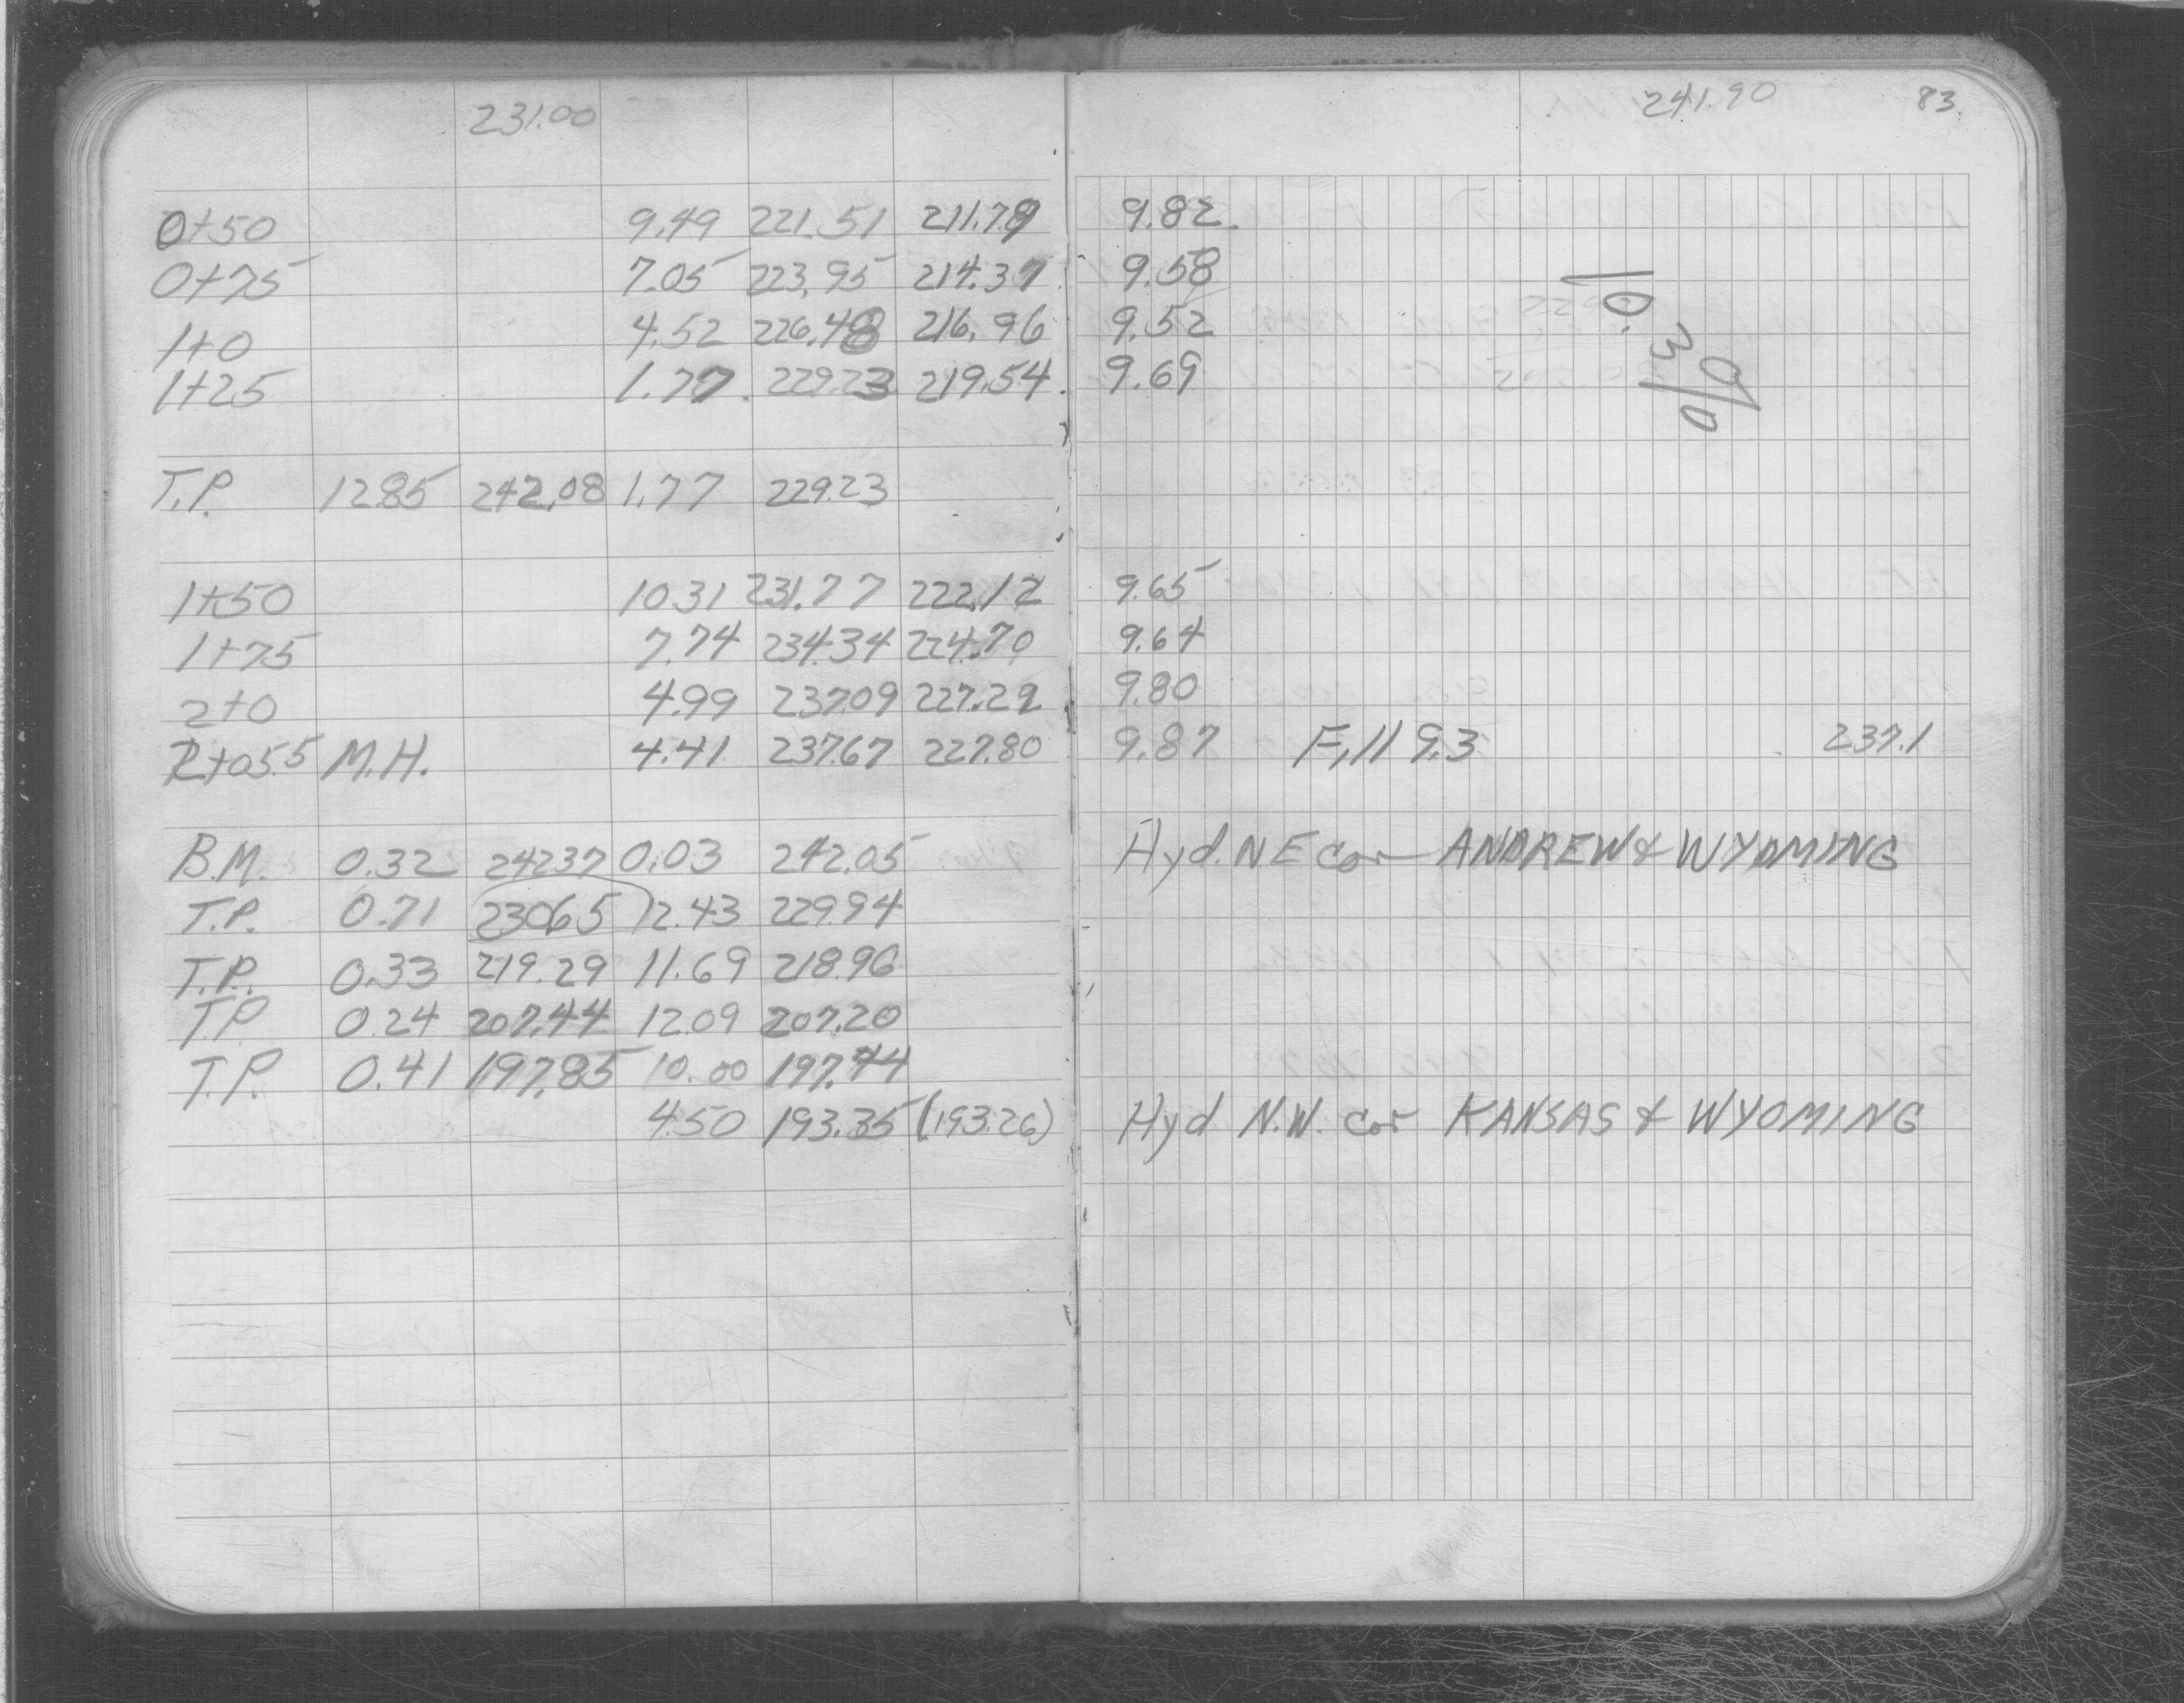 231.00 241.90 83.
0+50 9.49 221.51 211.79 9.82
0+75 7.05 223.95 214.37 9.58
1+0 4.52 226.48 216.96 9.52
1+25 1.77 229.23 219.54 9.69
10.3%
T.P. 12.85 242.08 1.77 229.23
1+50 10.31 231.77 222.12 9.65
1+75 7.74 234.34 224.70 9.64
2+0 4.99 237.09 227.29 9.80
2+05.5 M.H. 4.41 237.67 227.80 9.87 Fill 9.3 237.1
B.M. 0.32 242.37 0.03 242.05 Hyd. N E cor ANDREW & WYOMING
T.P. 0.71 230.65 12.43 229.94
T.P. 0.33 219.29 11.69 218.96
T.P 0.24 207.44 12.09 207.20
T.P. 0.41 197.85 10.00 197.44
4.50 193.35 (193.26) Hyd N.W. cor KANSAS & WYOMING